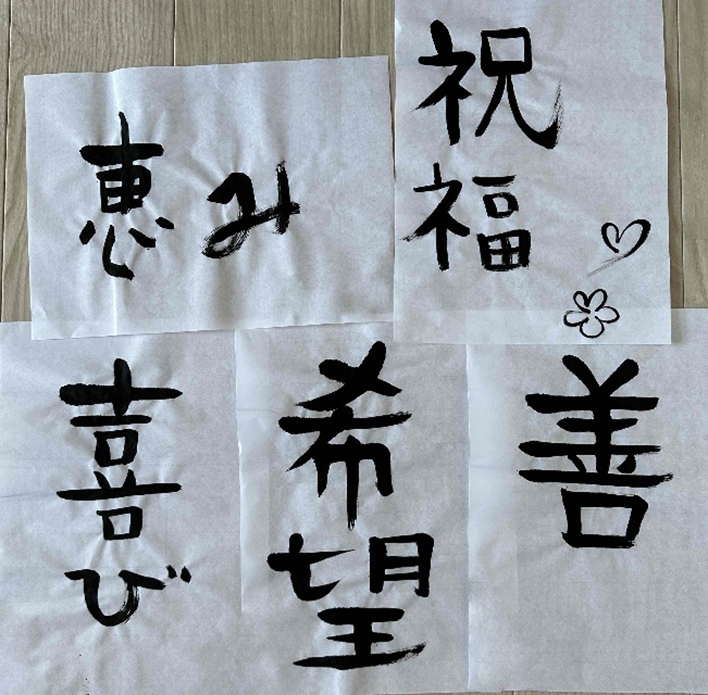 恵み
祝福
喜び
希望
善